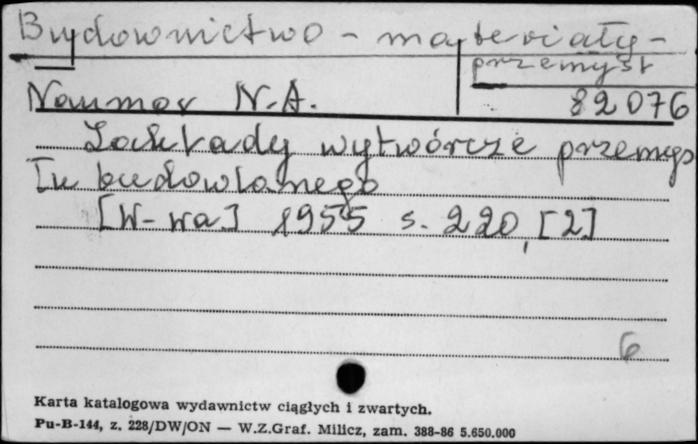 Budownictwo - materiały -
przemysł
Naumov N.A.
82076
Zakłady wytwórcze przemys
łu budowlanego
[W-wa] 1955 s. 220, [2]
6
Karta katalogowa wydawnictw ciągłych i zwartych.
Pu-B-144, z. 228/DW/ON — W.Z.Graf. Milicz, zam. 388-86 5.650.000